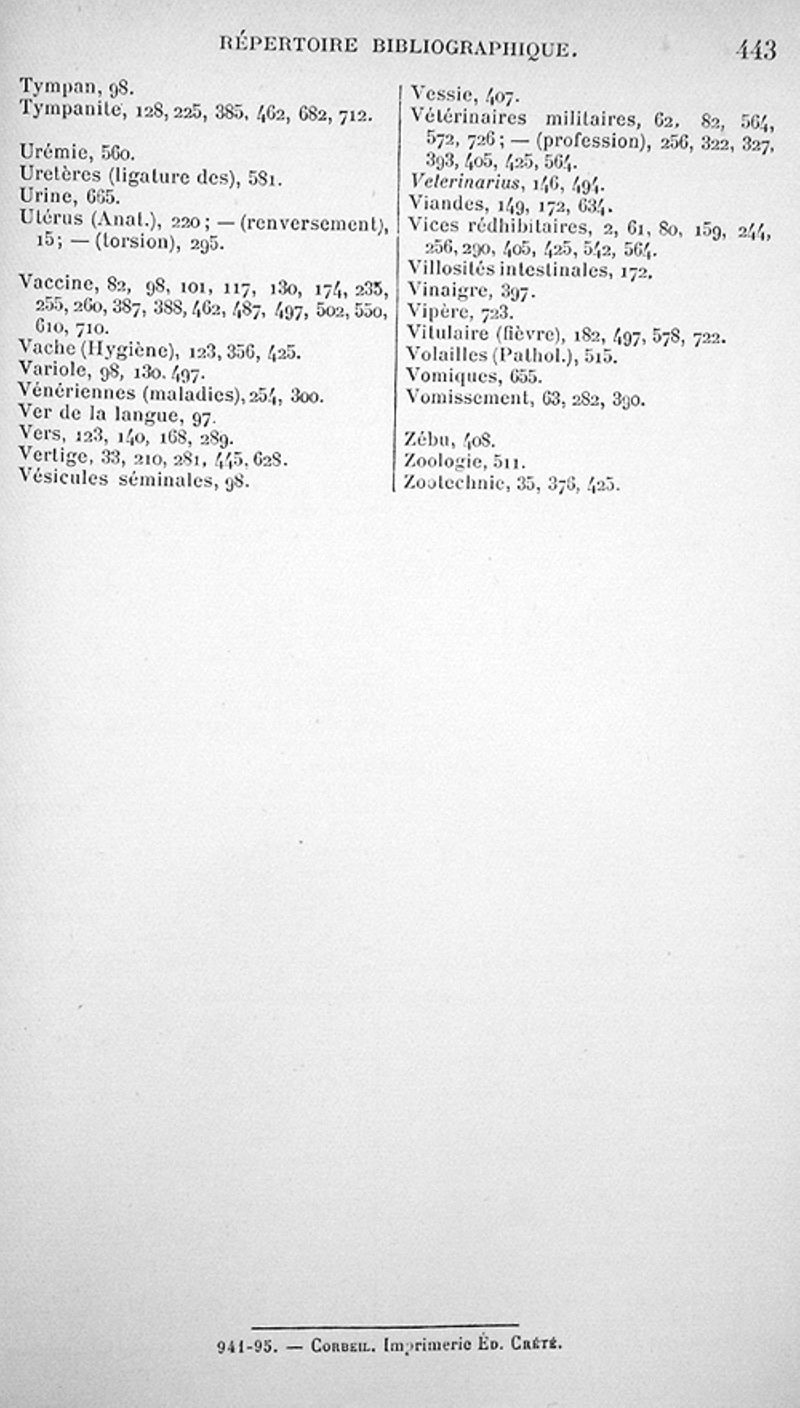 RÉPERTOIRE BIBLIOGRAPHIQUE.
443
Tympan, 98.
Tympanite, 128, 225, 385, 462, 682, 712.
Urémie, 560.
Uretères (ligature des), 581.
Urine, 665.
Utérus (Anat.), 220; — (renversement),
15; — (torsion), 295.
Vaccine, 82, 98, 101, 117, 130, 174, 235,
255, 260, 387, 388, 462, 487, 497, 502, 550,
610, 710.
Vache (Hygiène), 123, 356, 425.
Variole, 98, 130, 497.
Vénériennes (maladies), 254, 300.
Ver de la langue, 97.
Vers, 123, 140, 168, 289.
Vertige, 33, 210, 281, 445, 628.
Vésicules séminales, 98.
Vessie, 407.
Vétérinaires militaires, 62, 82, 564,
572, 726; — (profession), 256, 322, 327,
393, 405, 425, 564.
Veterinarius, 146, 494.
Viandes, 149, 172, 634.
Vices rédhibitaires, 2, 61, 80, 159, 244,
256, 290, 405, 425, 542, 564.
Villosités intestinales, 172.
Vinaigre, 397.
Vipère, 723.
Vitulaire (fièvre), 182, 497, 578, 722.
Volailles (Pathol.), 515.
Vomiques, 655.
Vomissement, 63, 282, 390.
Zébu, 408.
Zoologie, 511.
Zootechnie, 35, 376, 425.
941-95. — CORBEIL. Imprimerie ÉD. CRÉTÉ.